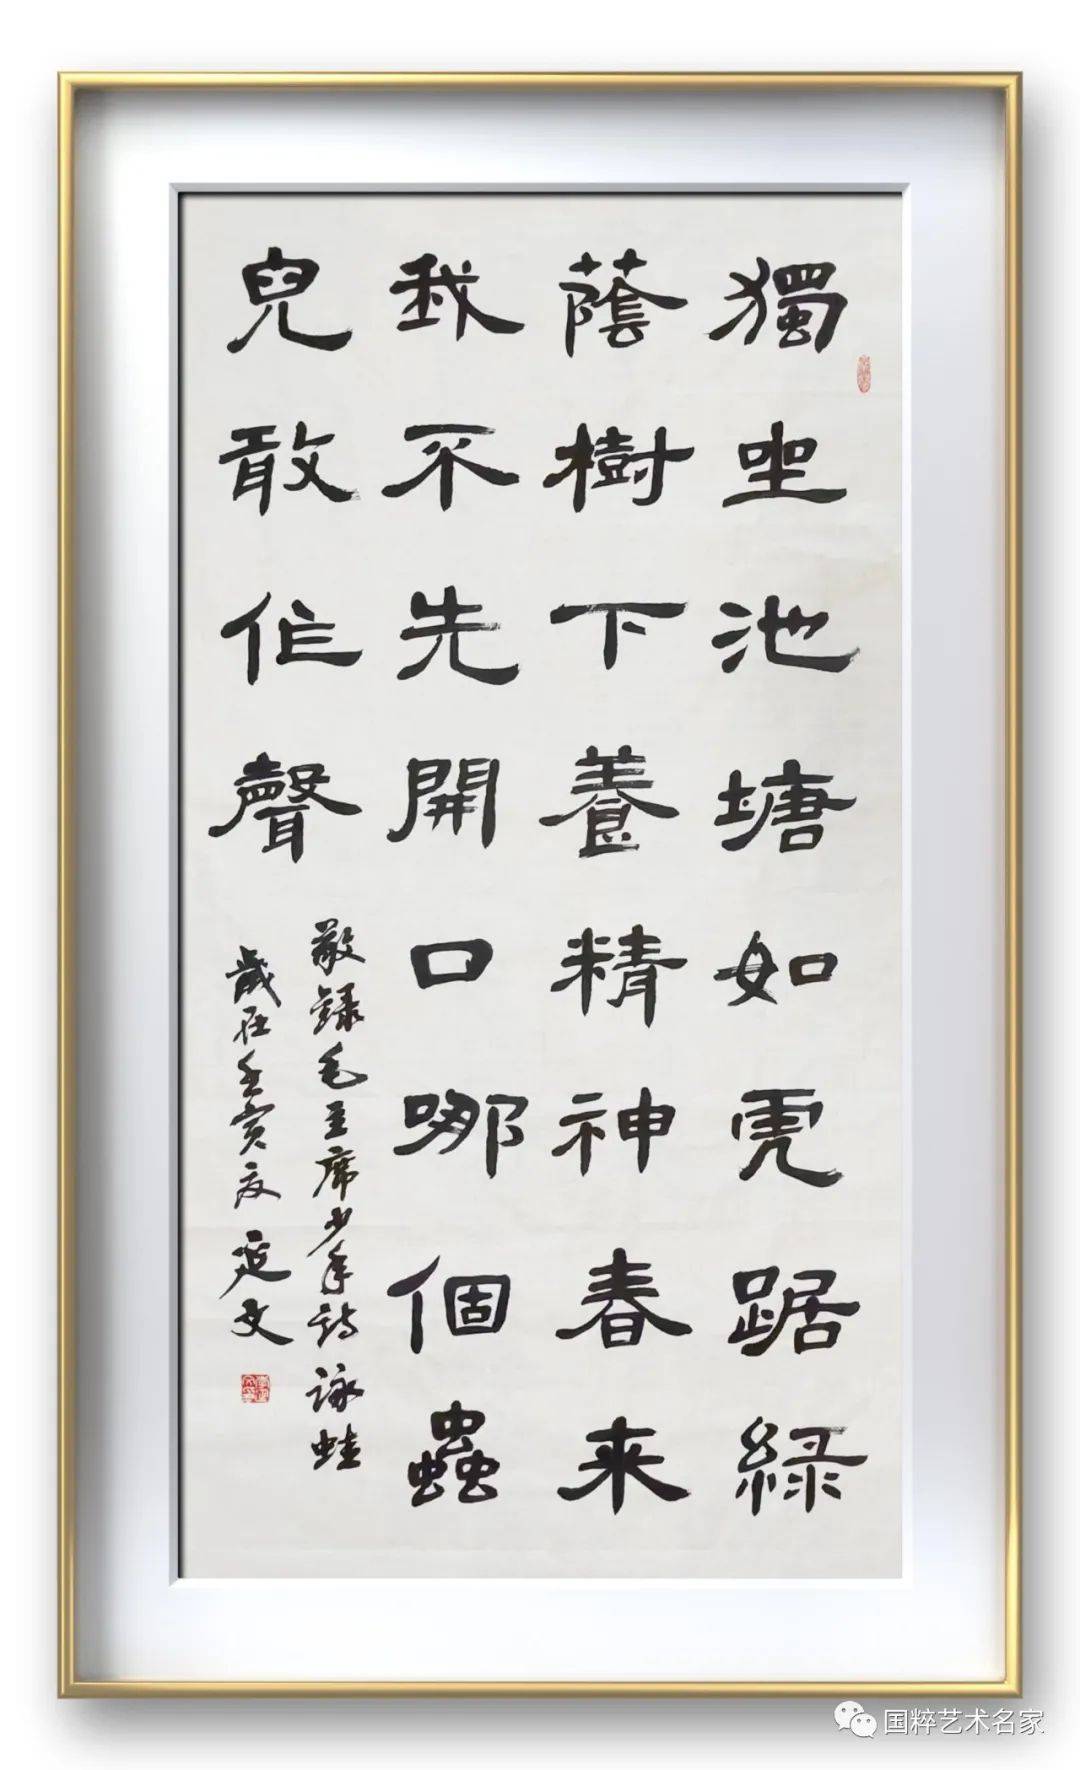 獨坐池塘如虎踞綠
蔭樹下養精神春来
我不先開口哪個蟲
兒敢作聲
敬録毛主席少年詩詠蛙
歲在壬寅夏延文
国粹艺术名家